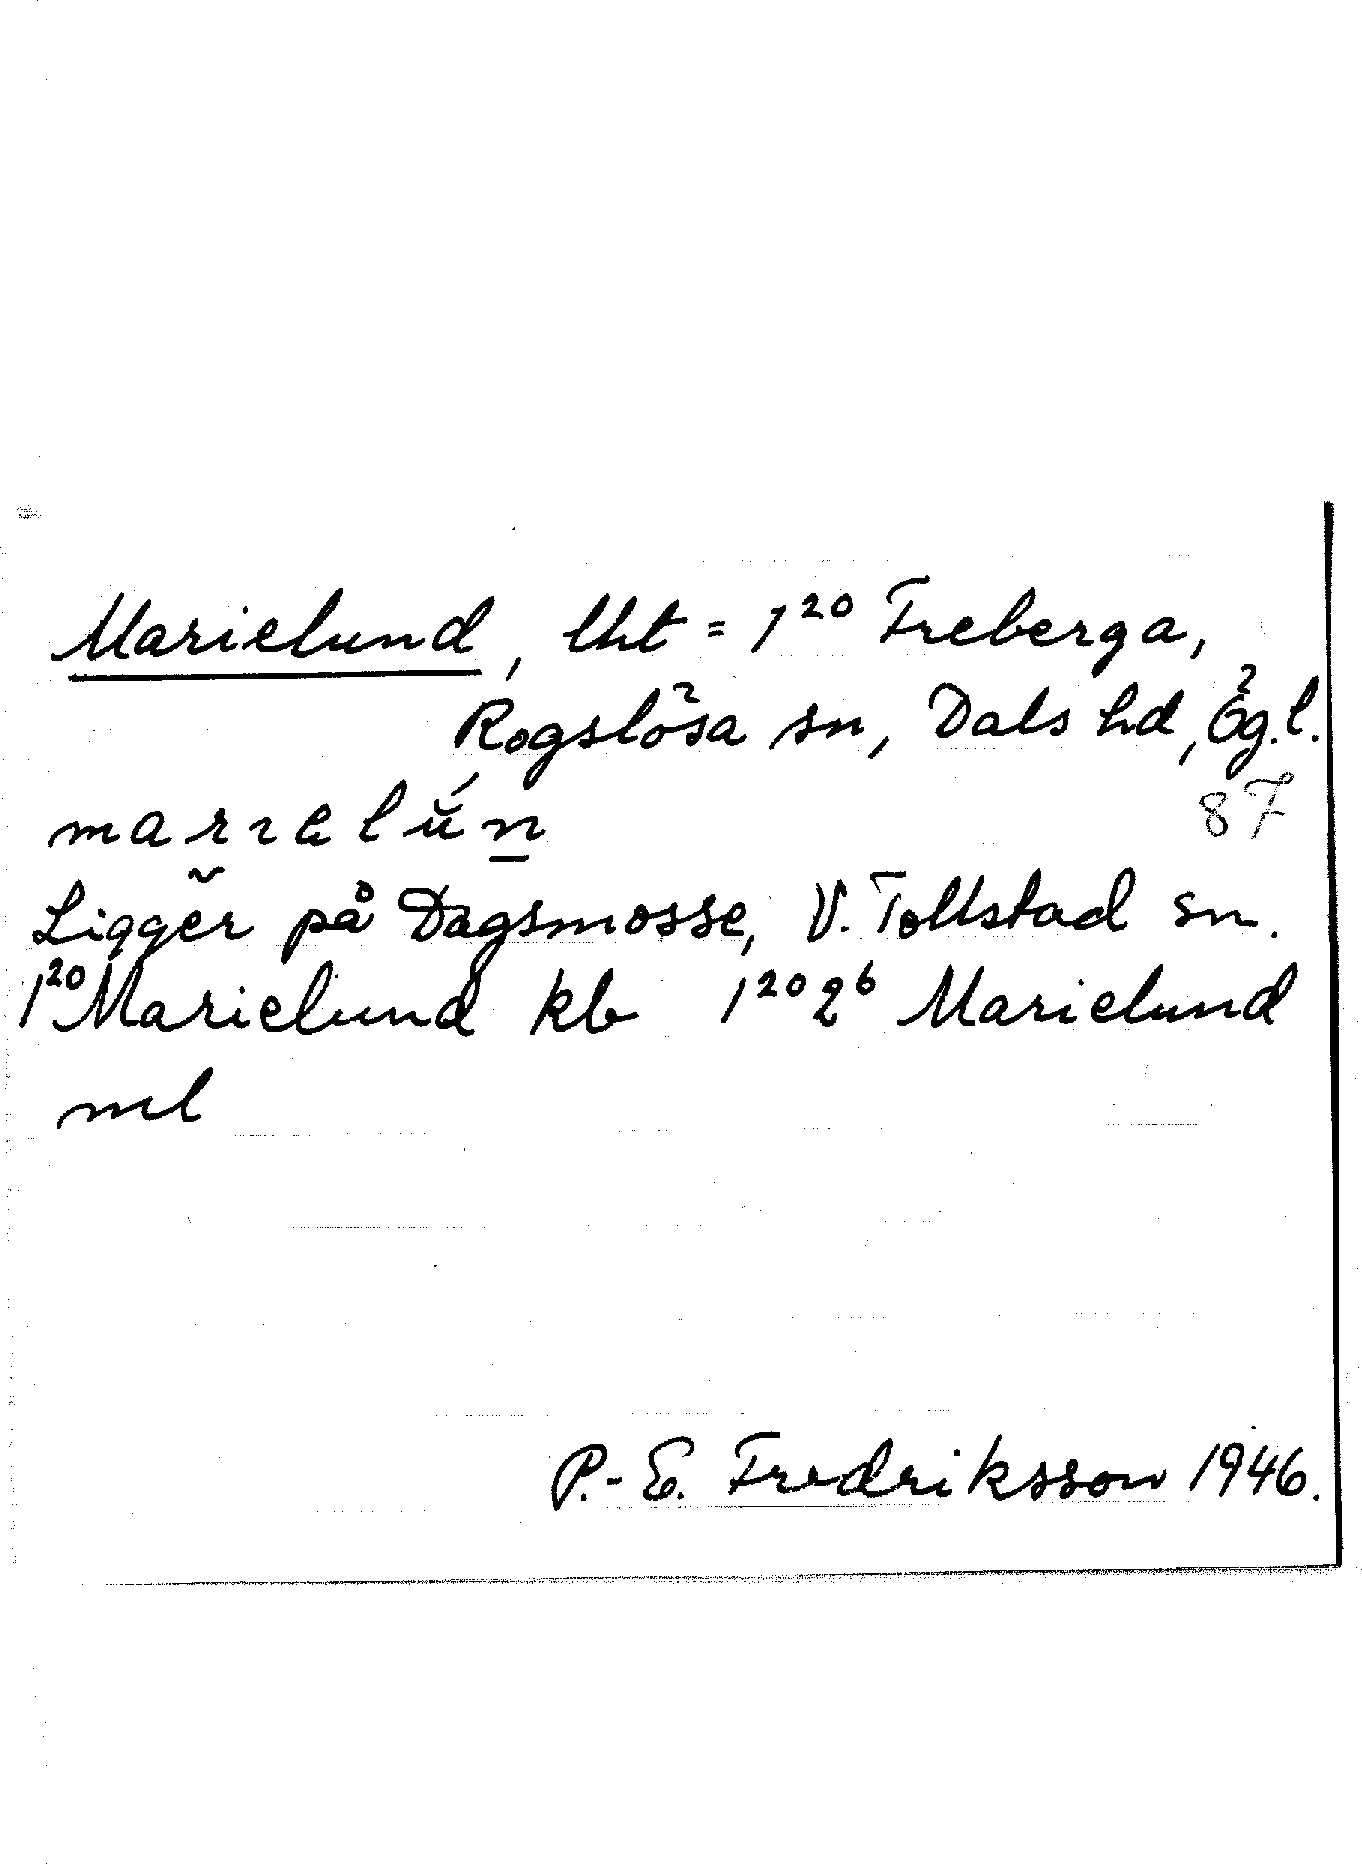 Marielund, lht = 1²⁰ Freberga,
Rogslösa sn, Dals hd, Ög.l.
87
Ligger på Dagsmosse, V. Tollstad sn.
1²⁰ Marielund kb 1²⁰2⁶ Marielund
ml
P.-E. Fredriksson 1946.